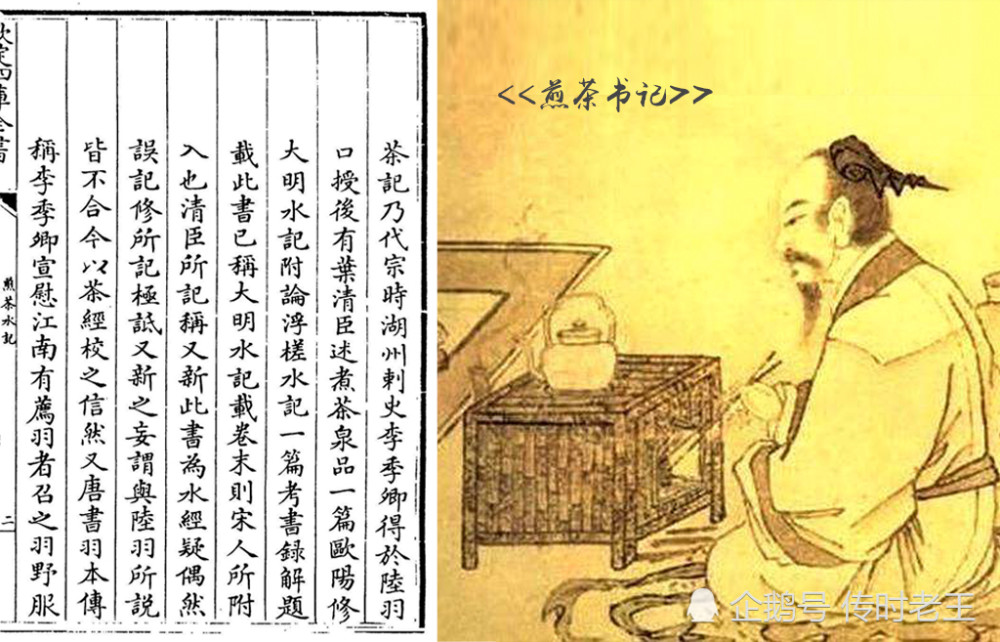 茶記乃代宗時湖州刺史李季卿得於陸羽
口授後有葉清臣述煮茶泉品一篇歐陽修
大明水記附論浮槎水記一篇考書録解題
載此書已稱大明水記載卷末則宋人所附
入也清臣所記稱又新此書為水經疑偶然
誤記修所記極詆又新之妄謂與陸羽所説
皆不合今以茶經校之信然又唐書羽本傳
稱李季卿宣慰江南有薦羽者召之羽野服
欽定四庫全書
煎茶水記
二
<<煎茶书记>>
企鹅号 传时老王